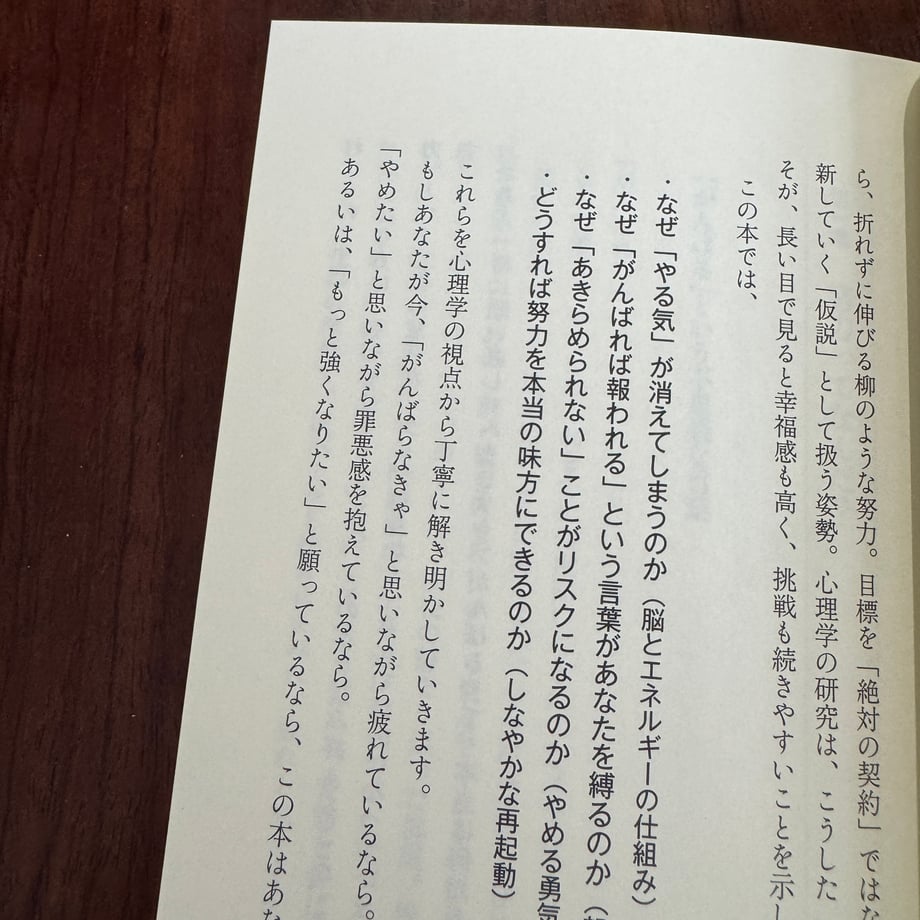 ら、折れずに伸びる柳のような努力。目標を「絶対の契約」ではな
新していく「仮説」として扱う姿勢。心理学の研究は、こうした
そが、長い目で見ると幸福感も高く、挑戦も続きやすいことを示し
この本では、
・なぜ「やる気」が消えてしまうのか（脳とエネルギーの仕組み）
・なぜ「がんばれば報われる」という言葉があなたを縛るのか（
・なぜ「あきらめられない」ことがリスクになるのか（やめる勇気
・どうすれば努力を本当の味方にできるのか（しなやかな再起動）
これらを心理学の視点から丁寧に解き明かしていきます。
もしあなたが今、「がんばらなきゃ」と思いながら疲れているなら。
「やめたい」と思いながら罪悪感を抱えているなら。
あるいは、「もっと強くなりたい」と願っているなら、この本はあな